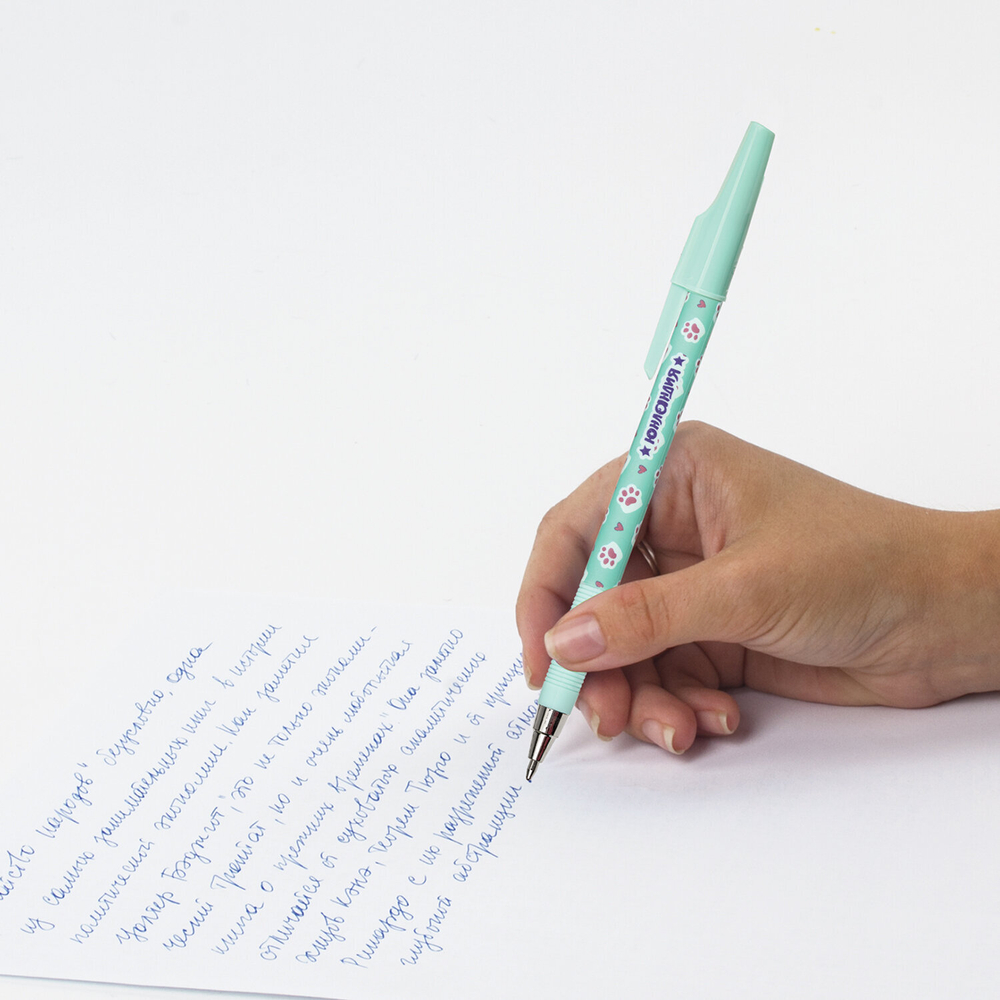 ЮНЛАНДИЯ
народов" безусловно, одна
из самых занимательных книг в истории
политической экономии. Как заметил
Уолтер Бэджгот, "это не только экономи-
ческий трактат, но и очень любопытная
книга о прежних временах" Она заметно
отличается от суховатых аналитических
Кэнэ, теорем Тюрго и от
Рикардо с их разреженной
глубокой абстракции